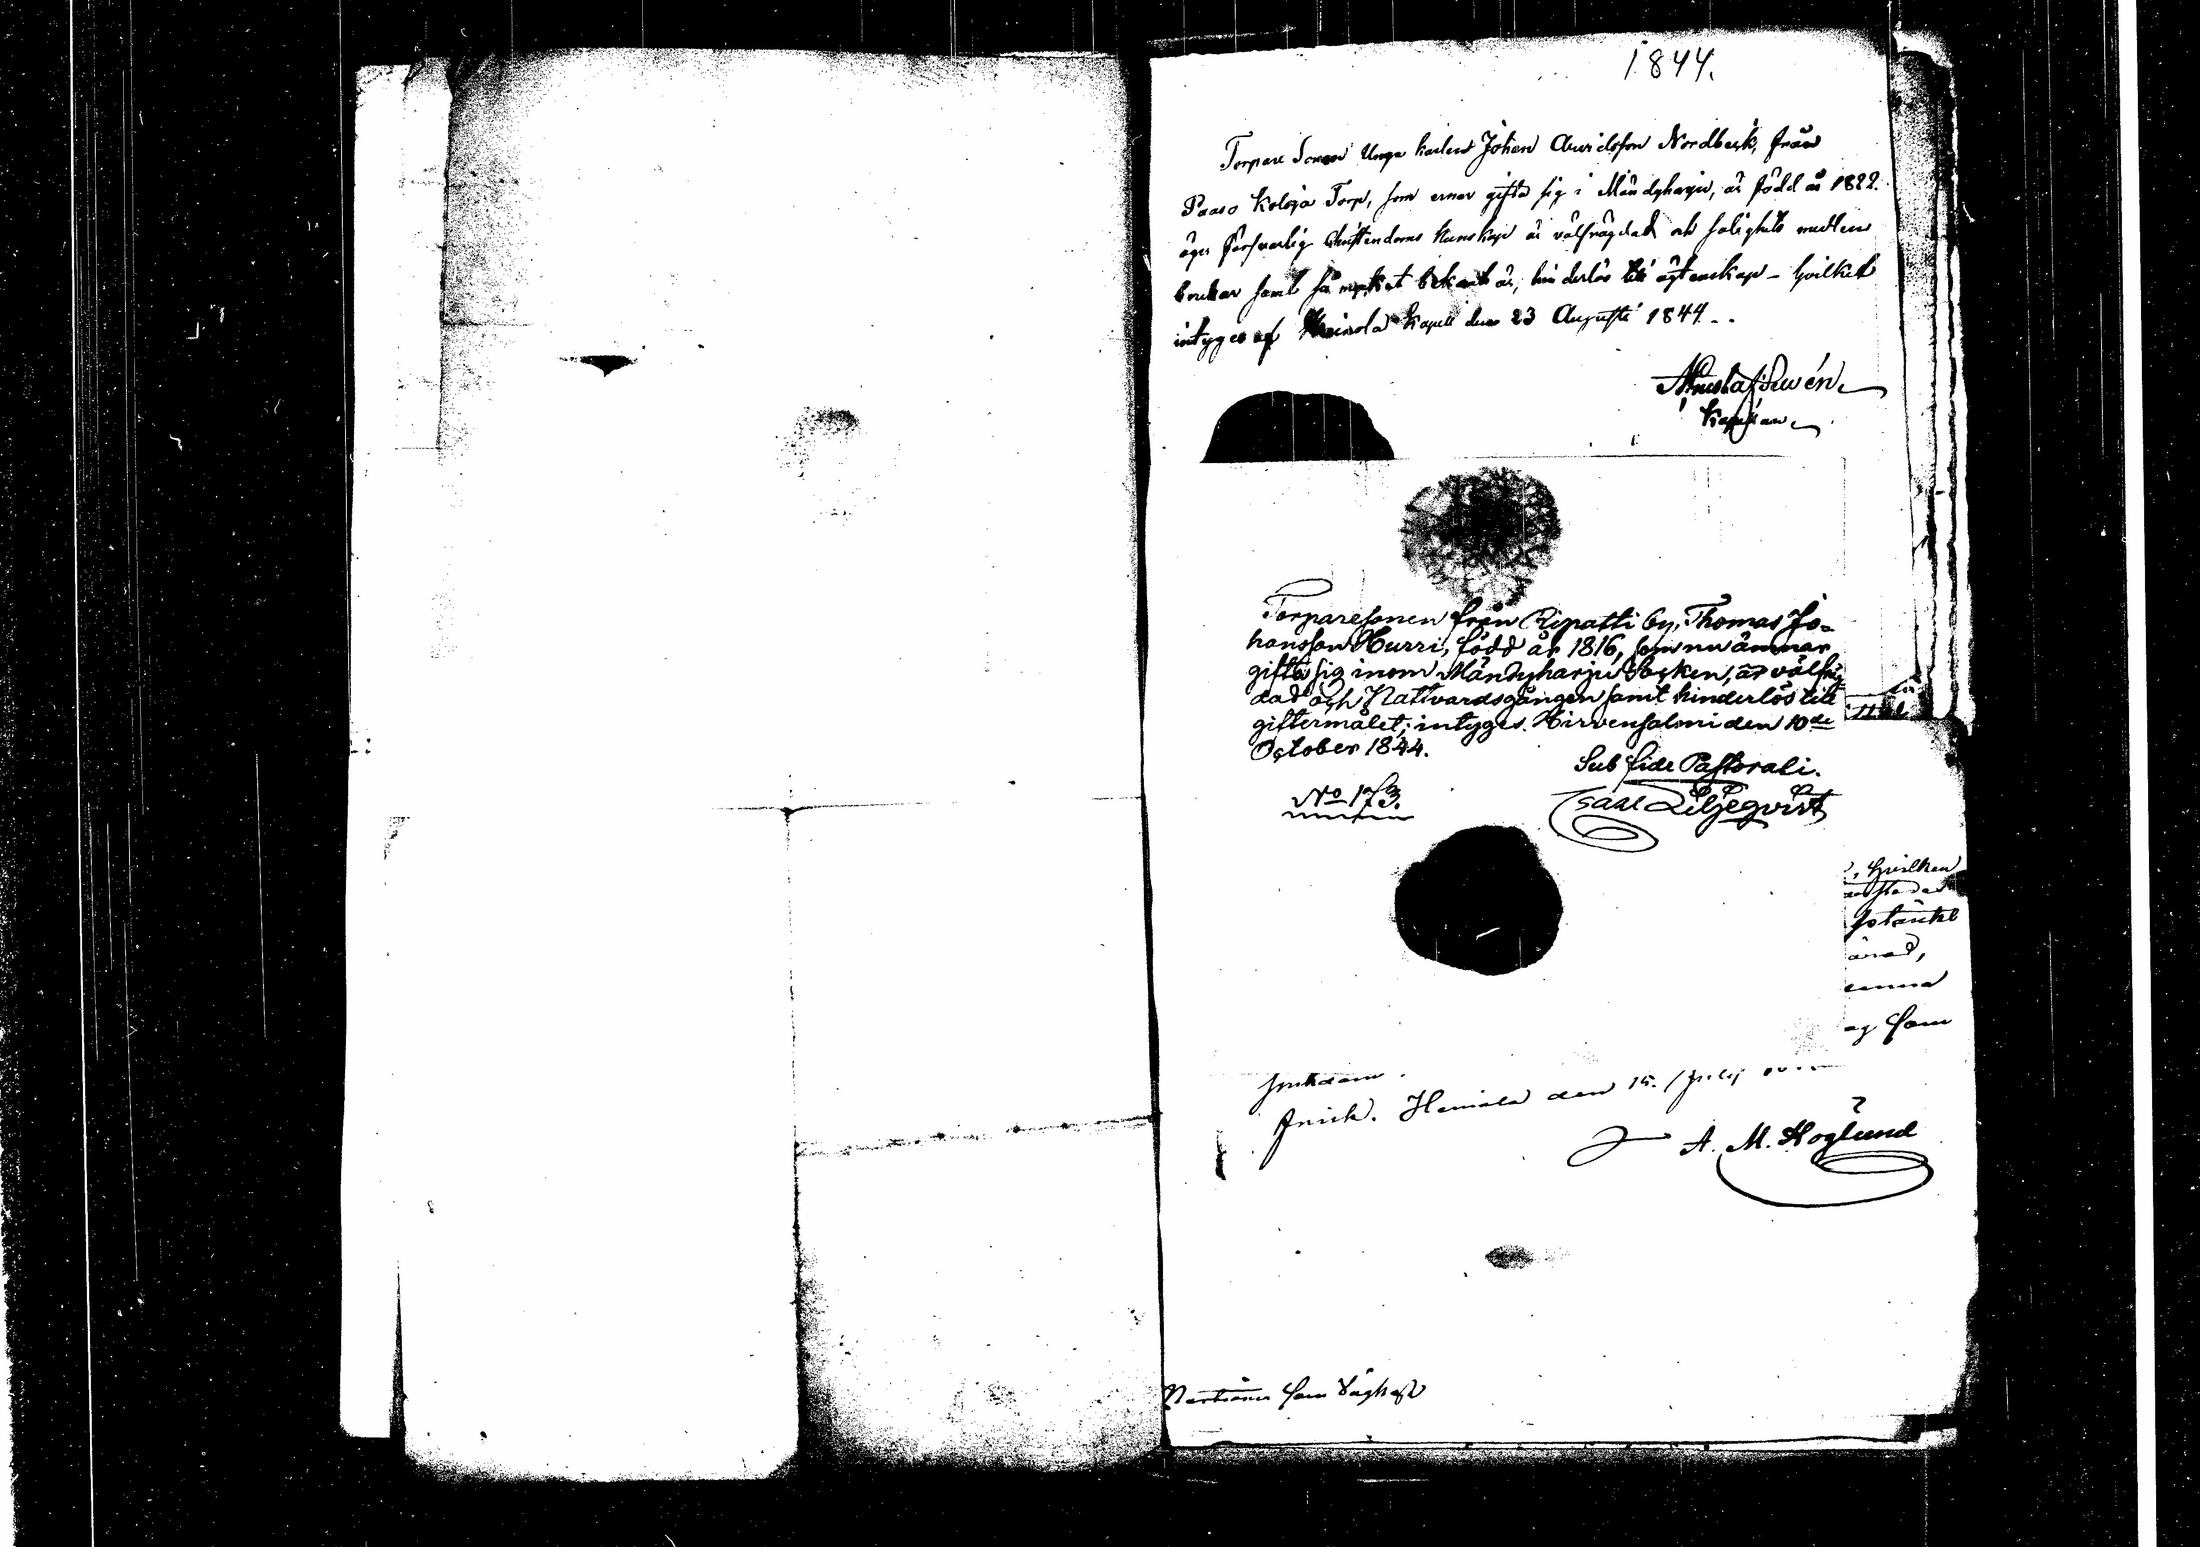 1844.
Torpare Sonen Unga Karlen Johan Arvidsson Nordberk, från
Paaso Koloja Torp, som ernar gifta sig i Mändyharju, är född år 1822.
äger försvarlig Christendoms Kunskap är välfrägdad och salighets medlen
brukar samt så mycket bekant är, hinderlös till ägtenskap – hvilket
intyges af Heinola Kapell den 23 Augusti 1844.
Kapellan
Torparesonen från Ripatti by, Thomas Jo-
hansson Hurri, född år 1816, som nu ämnar
gifta sig inom Mändyharju Socken, är välfräg-
dad och Nattvardsgången samt hinderlös till
giftermålet; intyges. Hirvensalmi den 10de
October 1844.
Sub fide Pastorali.
No 173.
Isaac Liljeqvist
, hvilken
enna
ag som
den 15. July
A. M. Höglund
som